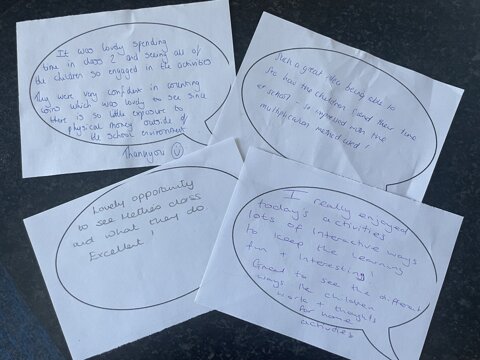 It was lovely spending
time in class 2 and seeing all of
the children so engaged in the activities
They were very confident in counting
coins which was lovely to see since
there is so little exposure to
physical money outside of
the school environment
Thankyou
Such a great idea being able to
see how the children spend their time
@ school - so impressed with the
multiplication method used!
Lovely opportunity
to see class
and what they do.
Excellent!
I really enjoyed
today's activities
lots of interactive ways
to keep the learning
fun + interesting!
Great to see the different
ways the children
work + thoughts
for home
activities